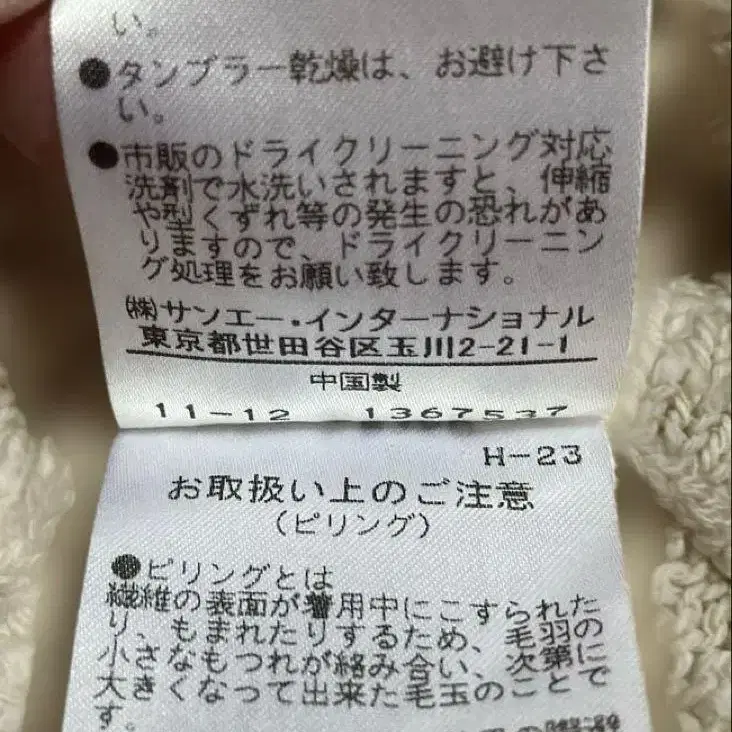 い。
●タンブラー乾燥は、お避け下さ
い。
●市販のドライクリーニング対応
洗剤で水洗いされますと、伸縮
や型くずれ等の発生の恐れがあ
りますので、ドライクリーニン
グ処理をお願い致します。
㈱サンエー・インターナショナル
東京都世田谷区玉川2-21-1
中国製
11-12 1367537
H-23
お取扱い上のご注意
(ピリング)
●ピリングとは
繊維の表面が着用中にこすられた
り、もまれたりするため、毛羽の
小さなもつれが絡み合い、次第に
大きくなって出来た毛玉のことで
す。